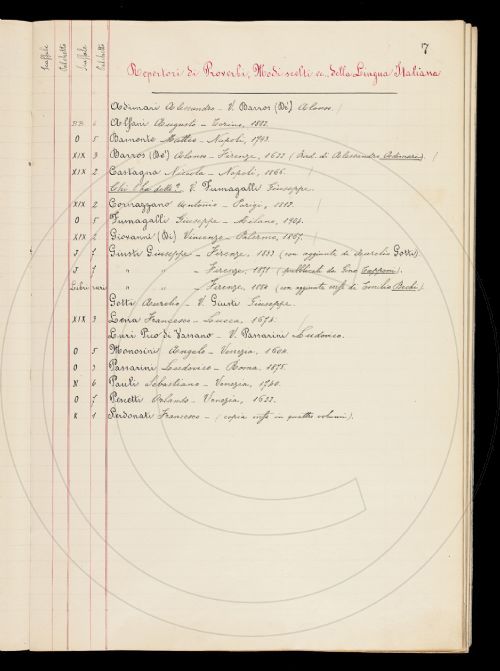 7
Scaffale Palchetto Scaffale Palchetto
Repertori di Proverbi, Modi scelti ec. della Lingua Italiana
Adimari Alessandro - V. Barros (De') Alonso.
BB 6 Alfani Augusto - Torino, 1882.
O 5 Bamonte Matteo - Napoli, 1743.
XIX 3 Barros (De') Alonso - Firenze, 1622 (Trad. di Alessandro Adimari).
XIX 2 Castagna Niccola - Napoli, 1866.
Chi l'ha detto? V. Fumagalli Giuseppe.
XIX 2 Cornazzano Antonio - Parigi, 1812.
O 5 Fumagalli Giuseppe - Milano, 1904.
XIX 2 Giovanni (Di) Vincenzo - Palermo, 1867.
J 7 Giusti Giuseppe - Firenze, 1853 (con aggiunte di Aurelio Gotti).
J 7 " " - Firenze, 1871 (pubblicati da Gino Capponi).
Libri rari " " - Firenze, 1884 (con aggiunte mss. di Emilio Bechi).
Gotti Aurelio - V. Giusti Giuseppe.
XIX 3 Lena Francesco - Lucca, 1674.
Luri Pico di Vassano - V. Passarini Ludovico.
O 5 Monosini Angelo - Venezia, 1604.
O 3 Passarini Ludovico - Roma, 1875.
N 6 Pauli Sebastiano - Venezia, 1740.
O 7 Pescetti Orlando - Venezia, 1622.
K 1 Serdonati Francesco - (copia mss. in quattro volumi).